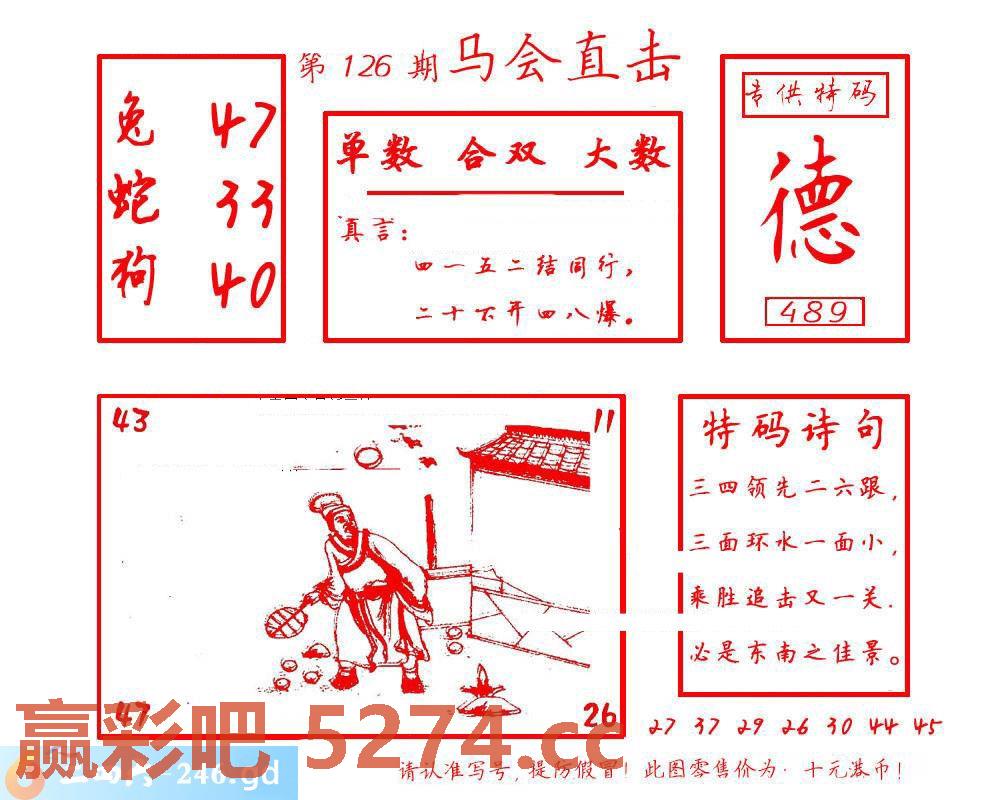 第 126 期 马会直击
兔 47
蛇 33
狗 40
单数 合双 大数
真言:
四一五二结同行,
二十下开四八爆。
专供特码
德
489
43
11
47
26
特码诗句
三四领先二六跟,
三面环水一面小,
乘胜追击又一关.
必是东南之佳景。
27 37 29 26 30 44 45
赢彩吧 5274.cc
-246.gd
请认准写号,提防假冒!此图零售价为·十元港币!